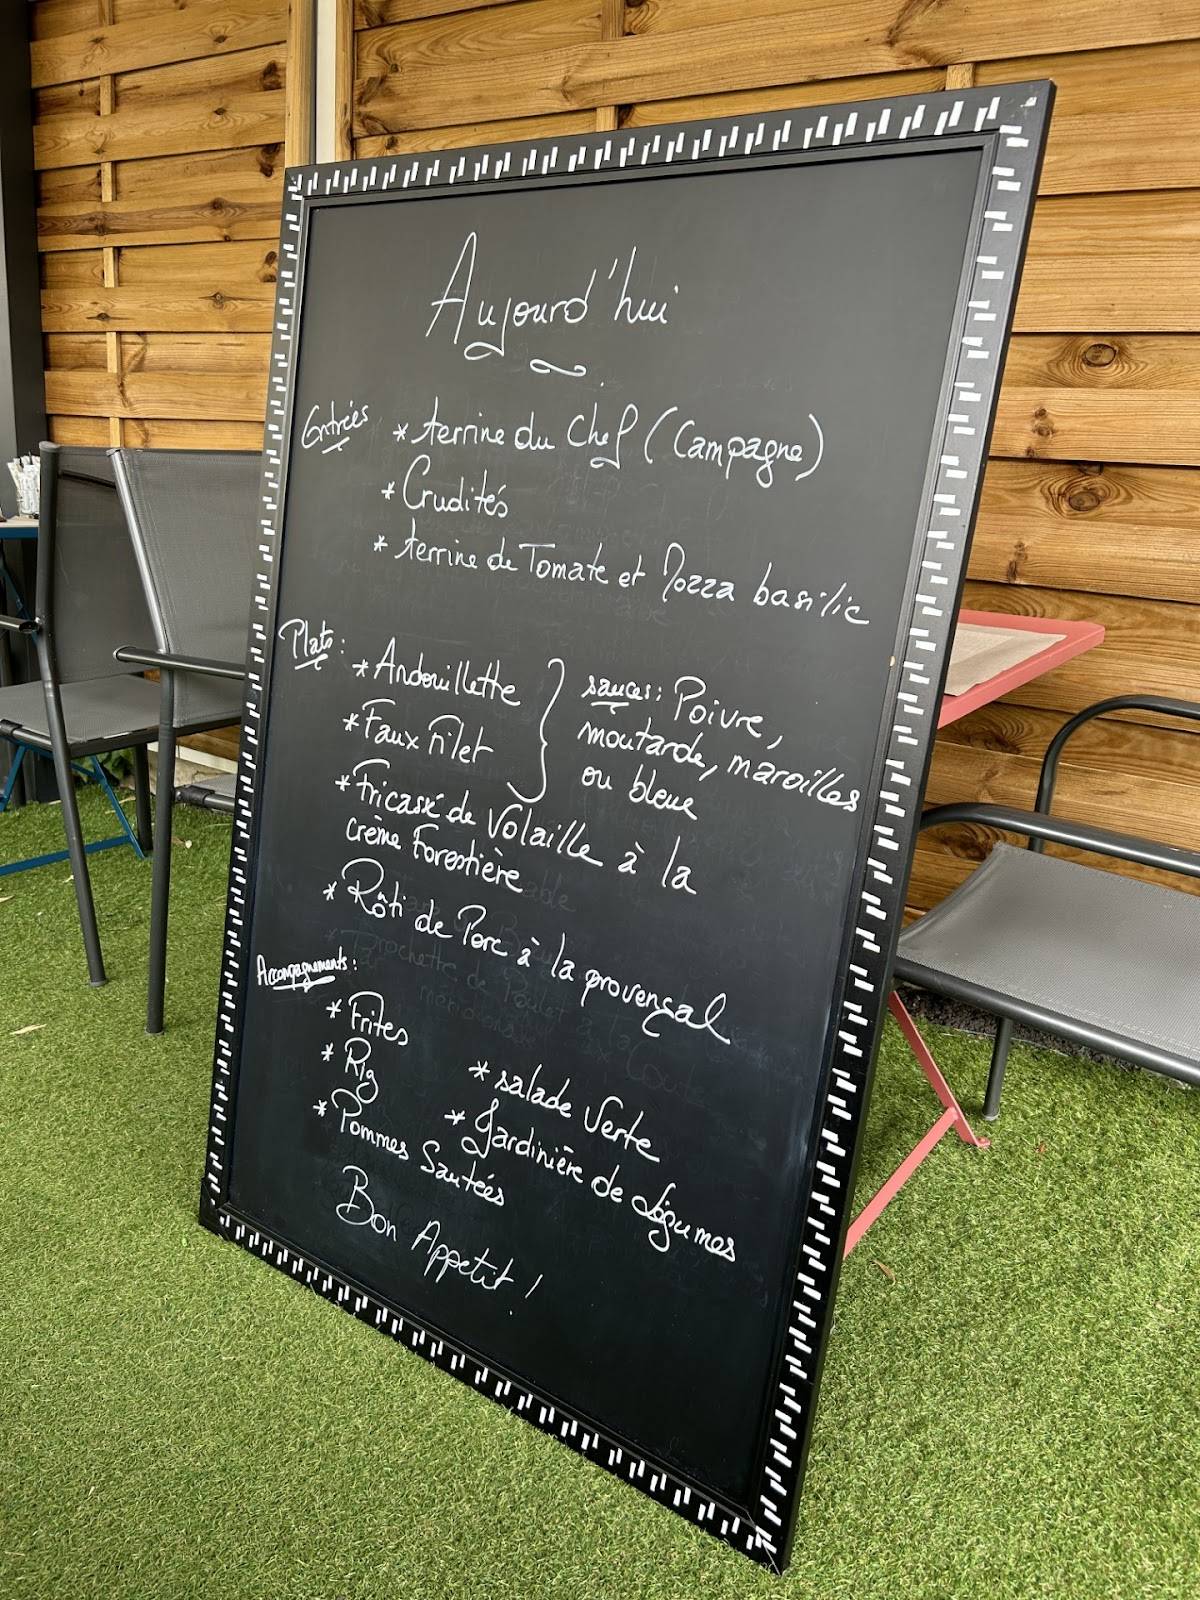 Aujourd'hui
Entrées
* terrine du Chef (Campagne)
* Crudités
* terrine de Tomate et Mozza basilic
Plats :
* Andouillette
* Faux Filet
sauces : Poivre,
moutarde, maroilles
ou bleue
* Fricassé de Volaille à la
crème Forestière
* Rôti de Porc à la provençal
Accompagnements :
* Frites
* Riz
* Pommes Sautées
* salade Verte
* Jardinière de Légumes
Bon Appetit !